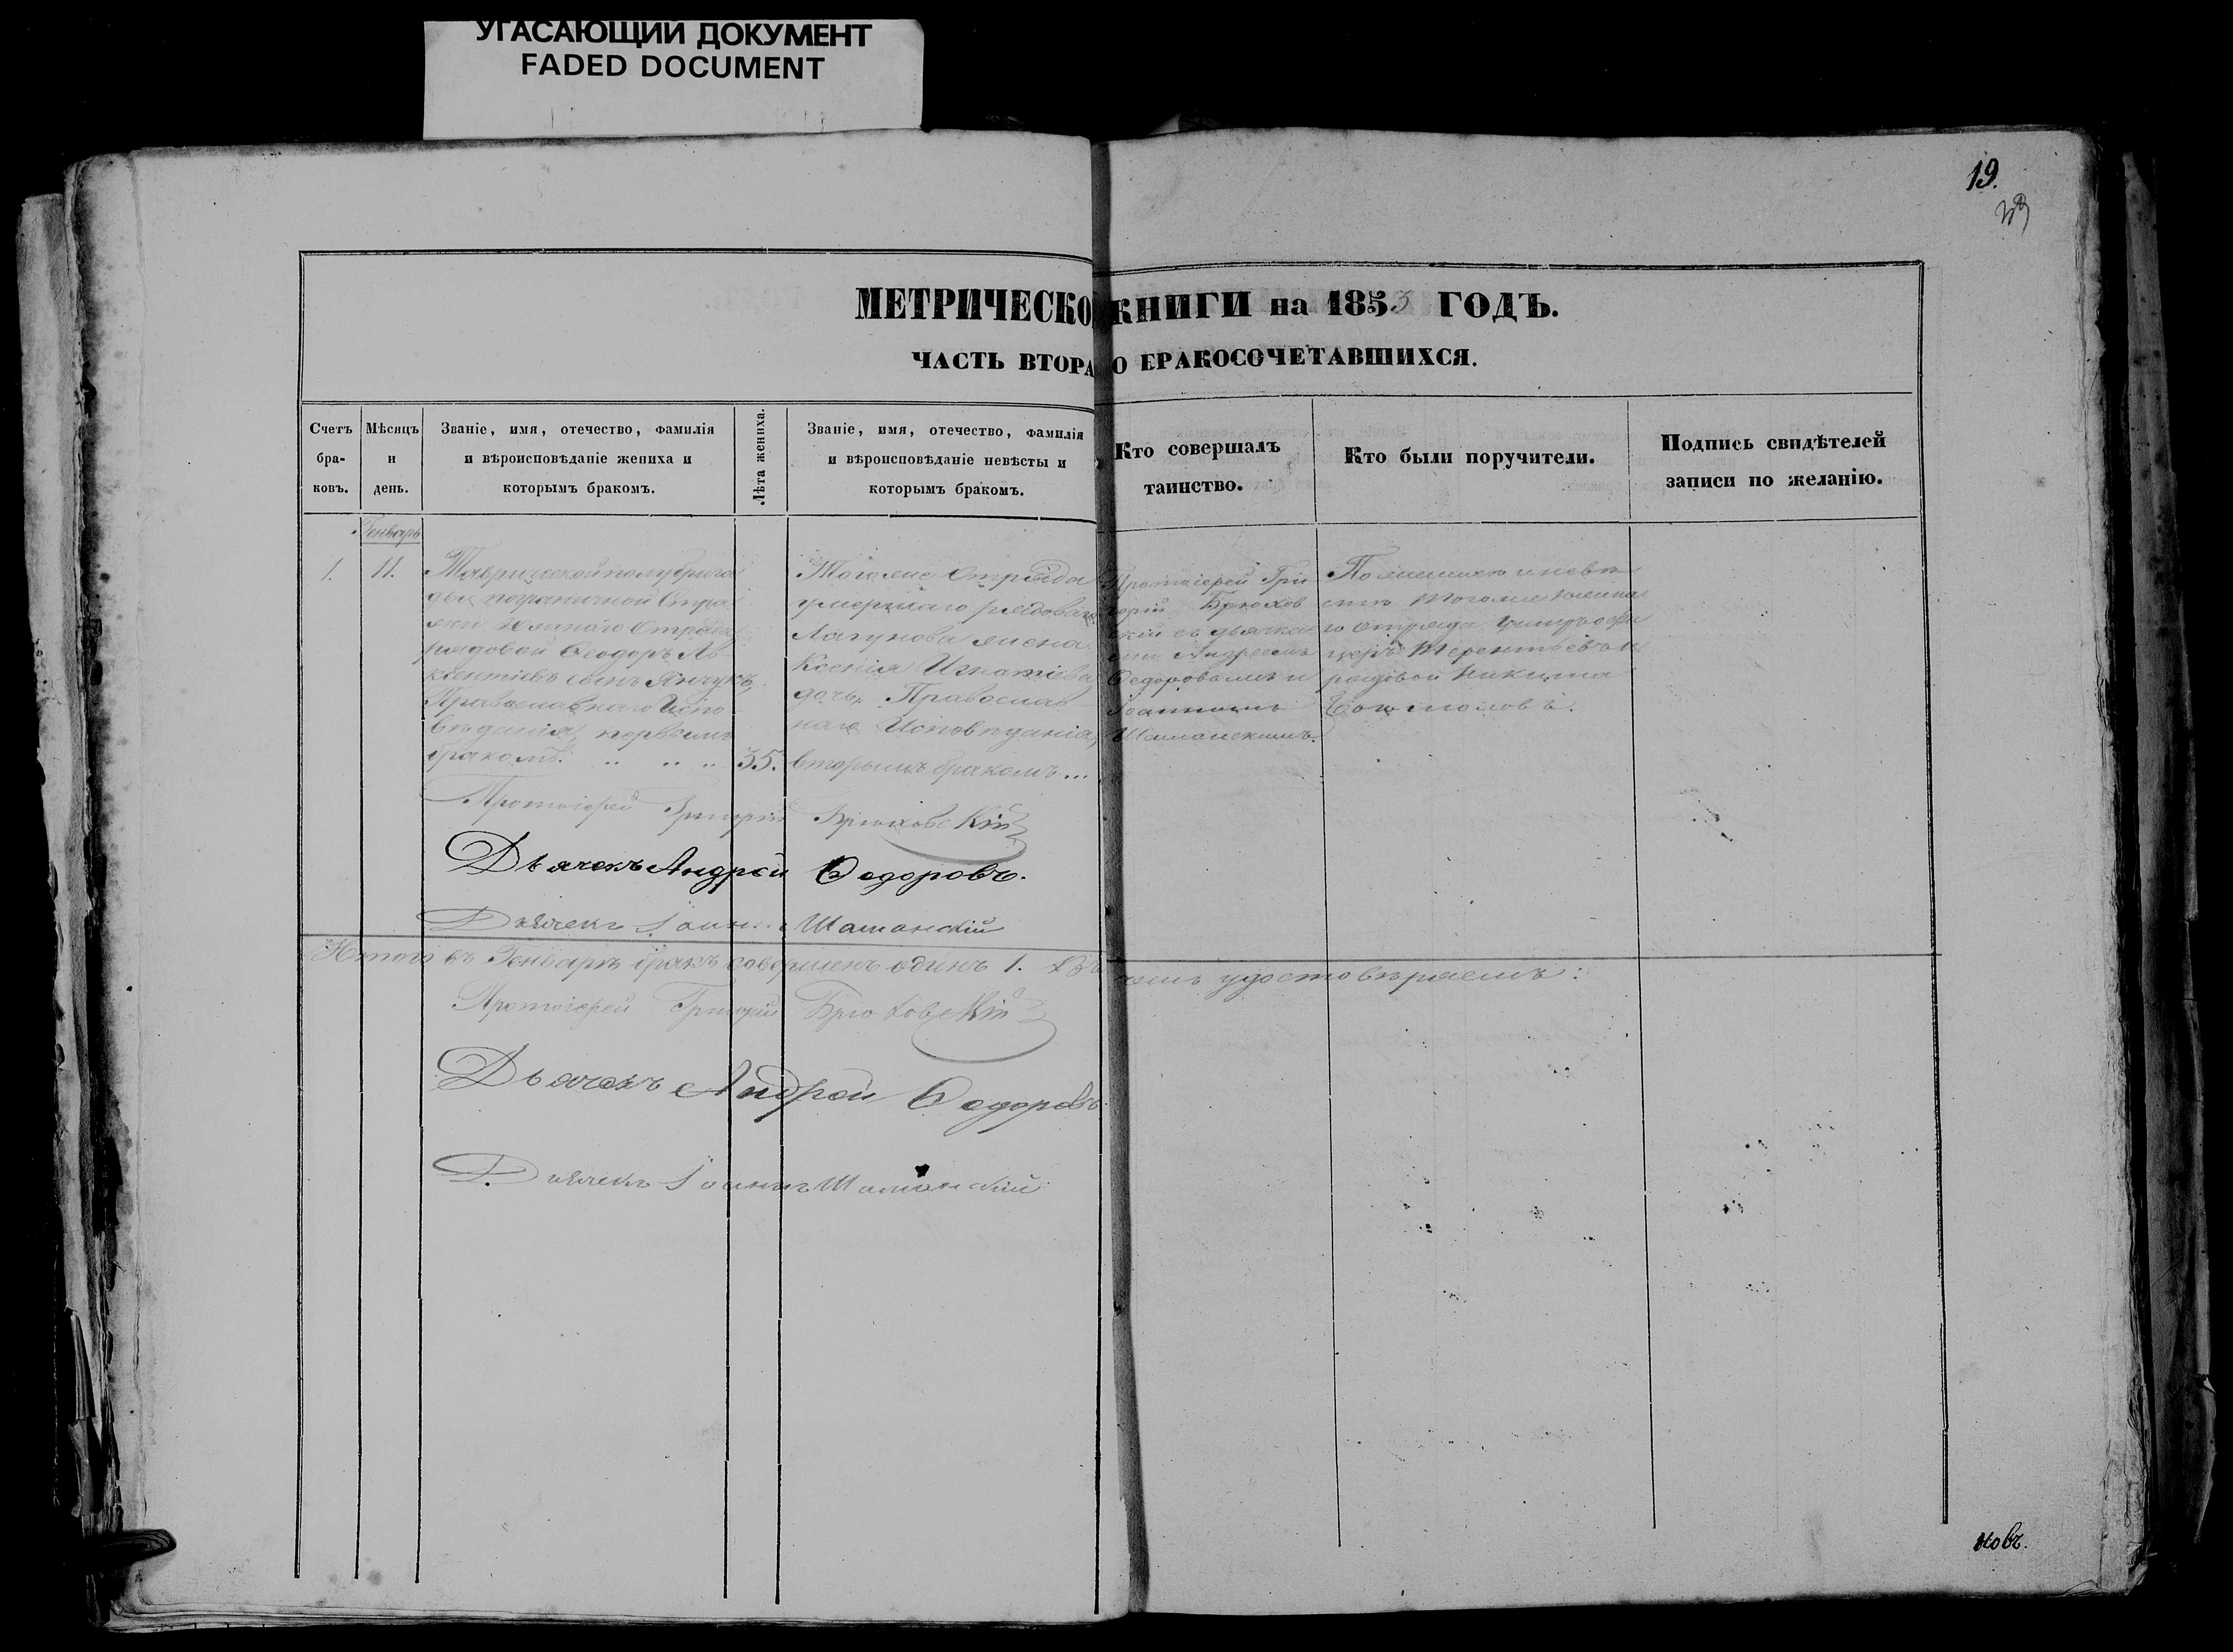 УГАСАЮЩИЙ ДОКУМЕНТ
FADED DOCUMENT
19.
МЕТРИЧЕСКО КНИГИ на 1853 ГОДЪ.
ЧАСТЬ ВТОРА О БРАКОСОЧЕТАВШИХСЯ.
Счетъ бра- ковъ.
Мѣсяцъ и день.
Званіе, имя, отечество, фамилія и вѣроисповѣданіе жениха и которымъ бракомъ.
Лѣта жениха.
Званіе, имя, отечество, фамилія и вѣроисповѣданіе невѣсты и которымъ бракомъ.
Кто совершалъ таинство.
Кто были поручители.
Подпись свидѣтелей записи по желанію.
Генварь
1.
11.
Таврической полубрига
ды пограничной Стра
жи Отряда
рядовой Ѳеодоръ Ав
ксентіевъ сынъ Янчукъ
Православнаго Испо
вѣданія, первымъ
бракомъ.
35.
Тогоже Отряда
умершаго рядоваго
Лагунова жена
Ксенія Игнатіева
дочь, Православ
наго Исповѣданія,
вторымъ бракомъ...
Протоіерей Гри
горій Брюхов
скій съ дьячка
ми Андреемъ
Ѳедоровымъ и
Іоанномъ
Шаманскимъ.
По женихѣ и невѣ
стѣ тогоже
отряда Унтеръ офи
церъ Терентьевъ и
рядовой Никита
Протоіерей Григорій Брюховскій
Дьячекъ Андрей Ѳедоровъ.
Дьячекъ Іоаннъ Шаманскій
Итого въ Генварѣ бракъ совершенъ одинъ 1. удостовѣряемъ:
Протоіерей Григорій Брюховскій
Дьячекъ Андрей Ѳедоровъ
Дьячекъ Іоаннъ Шаманскій
новъ.